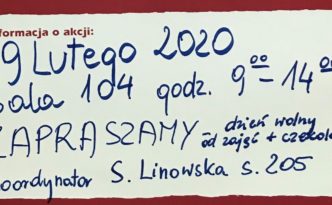 nformacja o akcji:
9 Lutego 2020
ala 104 godz. 9⁰⁰ - 14⁰
ZAPRASZAMY - dzień wolny
od zajęć + czekola
oordynator S. Linowska s. 205